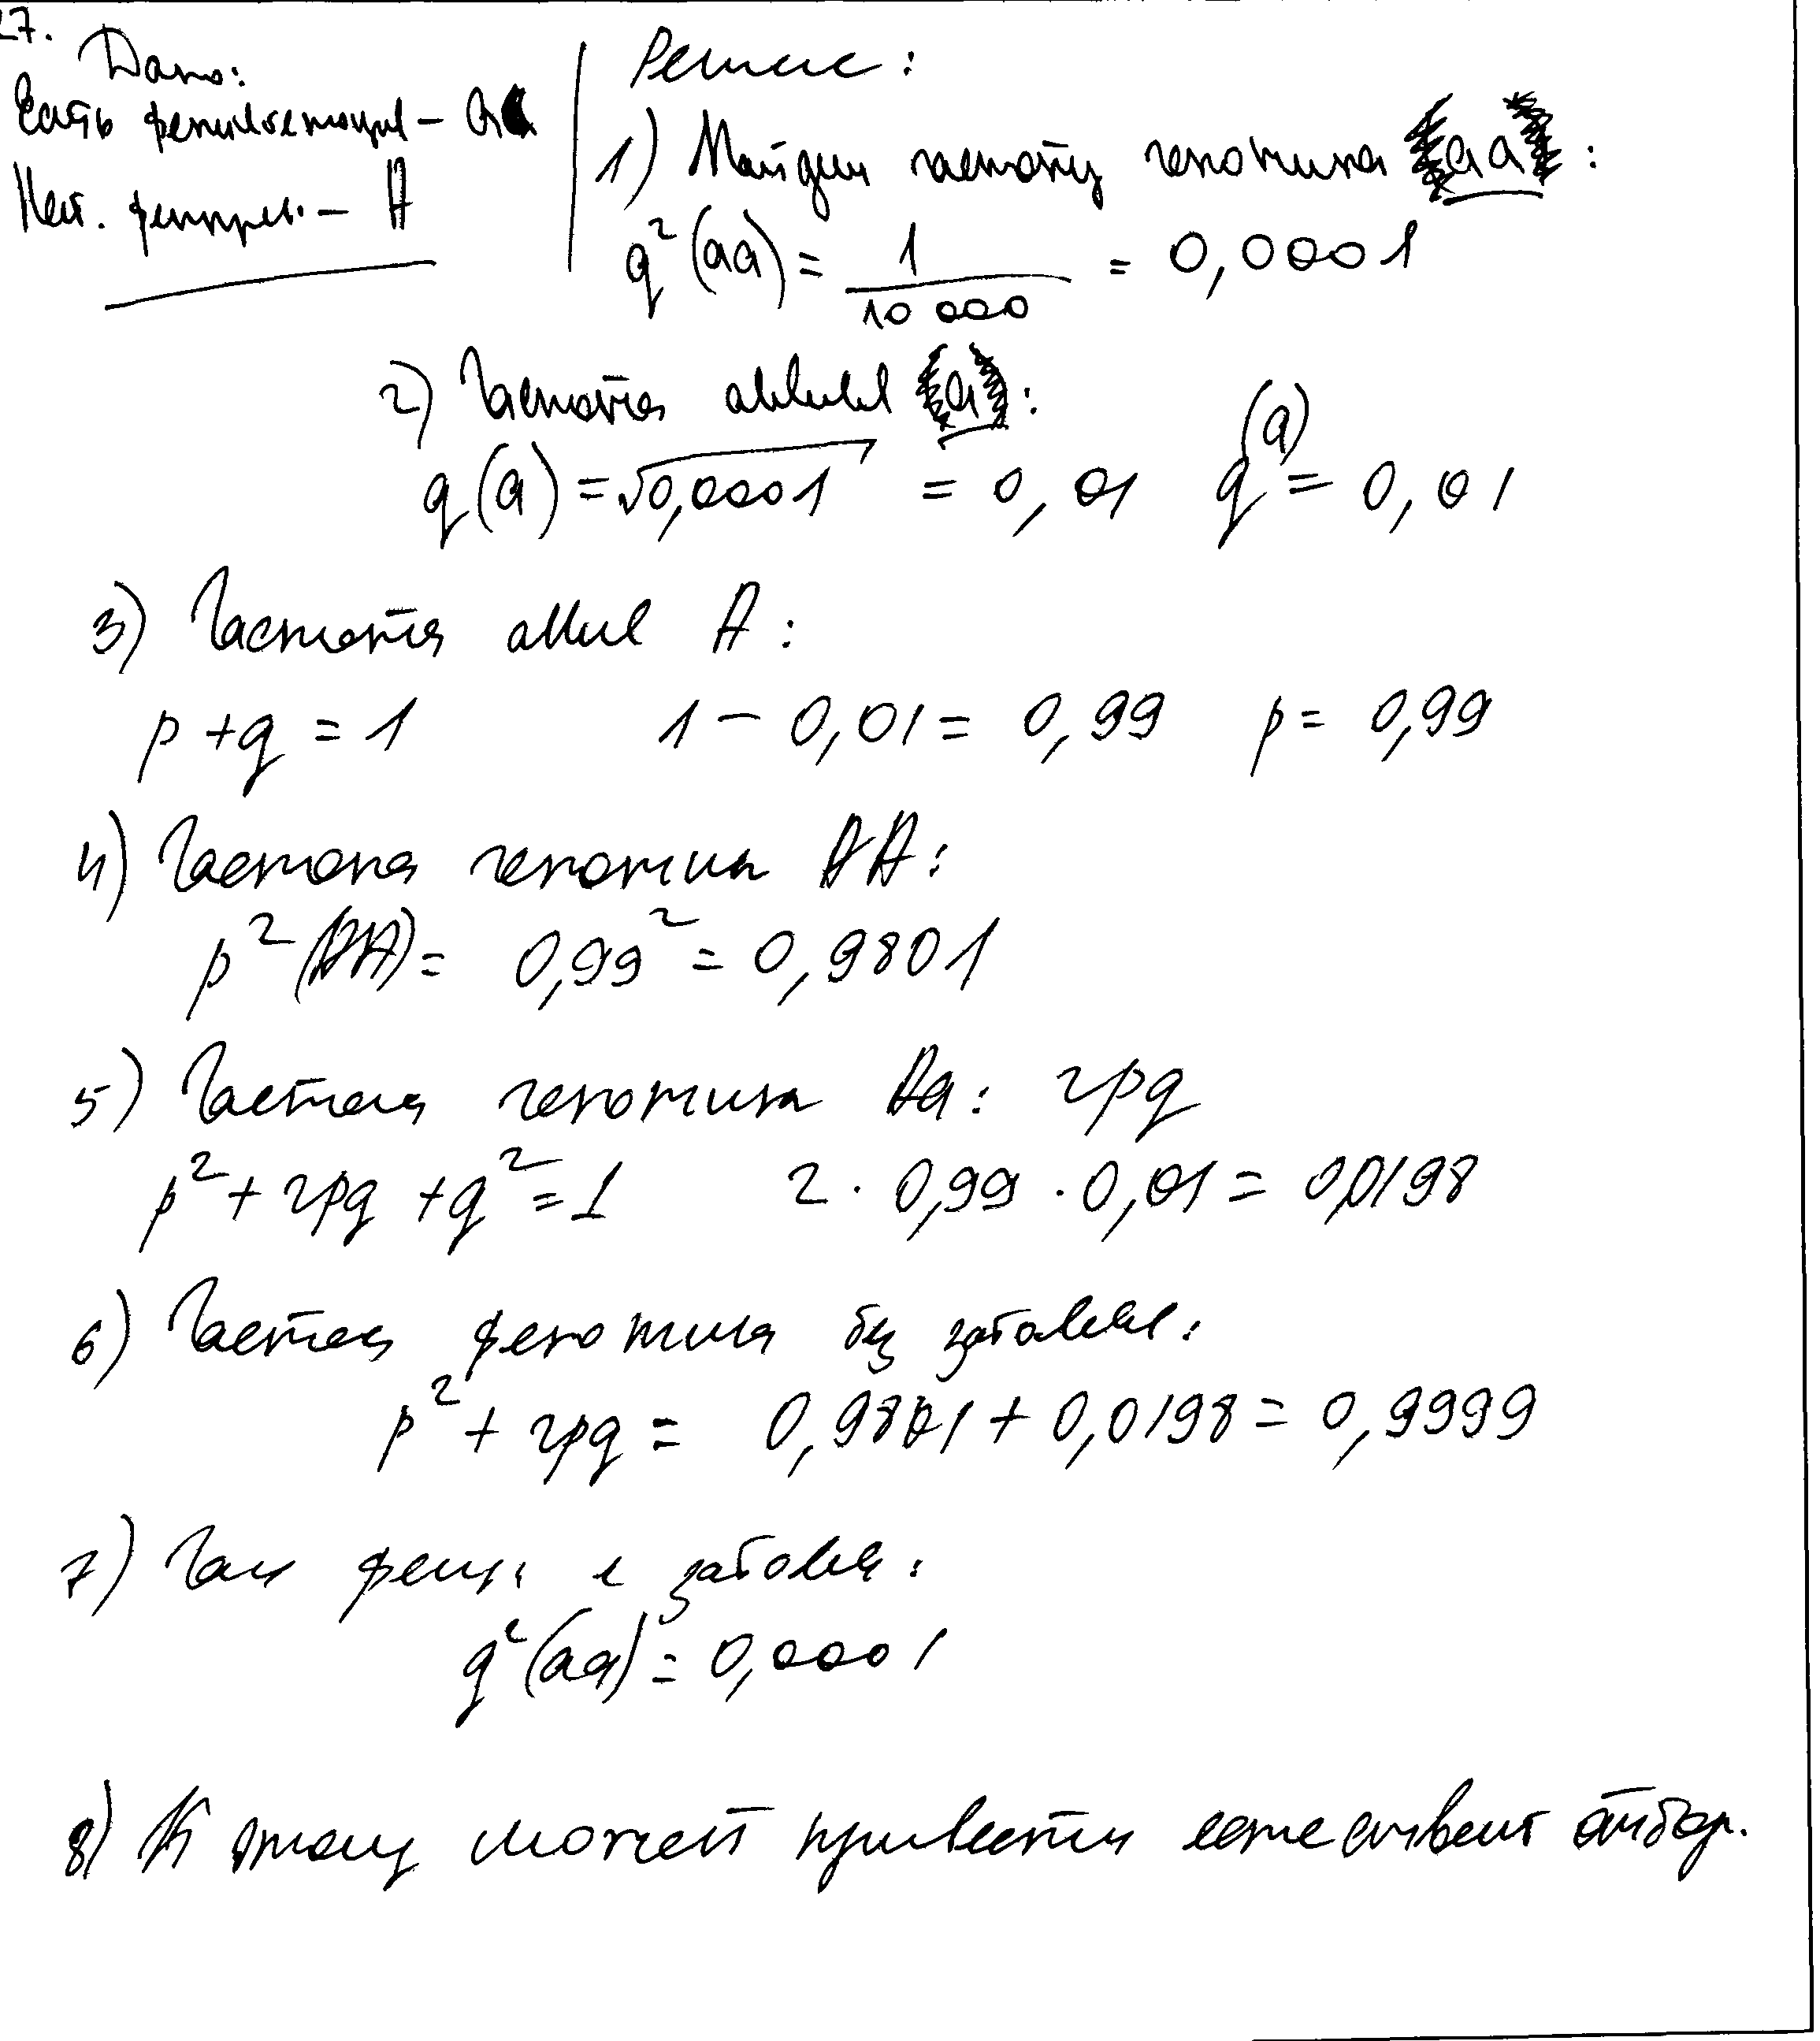 27.
Дано:
Есть фенилкетонур - а
Нет. фенкрет. - А
Решение:
1) Найдем частоту генотипа aa:
q²(aa) = 1/10 000 = 0,0001
2) Частота аллеля a:
q(a) = √0,0001 = 0,01 q(a) = 0,01
3) Частота аллел А:
p + q = 1 1 - 0,01 = 0,99 p = 0,99
4) Частота генотип АА:
p²(АА) = 0,99² = 0,9801
5) Частота генотипа Аа: 2pq
p² + 2pq + q² = 1 2 · 0,99 · 0,01 = 0,0198
6) Частота фенотипа без заболев:
p² + 2pq = 0,9801 + 0,0198 = 0,9999
7) Час фен. с заболев:
q²(aa) = 0,0001
8) К этому может привести естествент отбор.